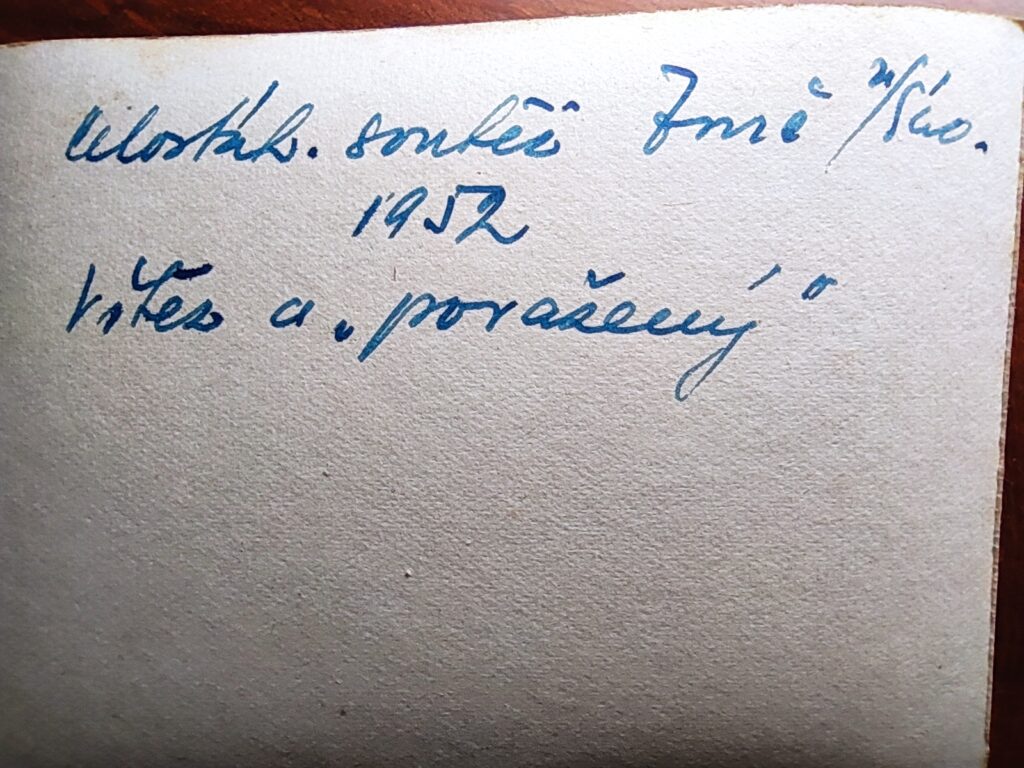 celostátn. soutěž Zruč n/Sáz.
1952
Vítěz a „poražený"